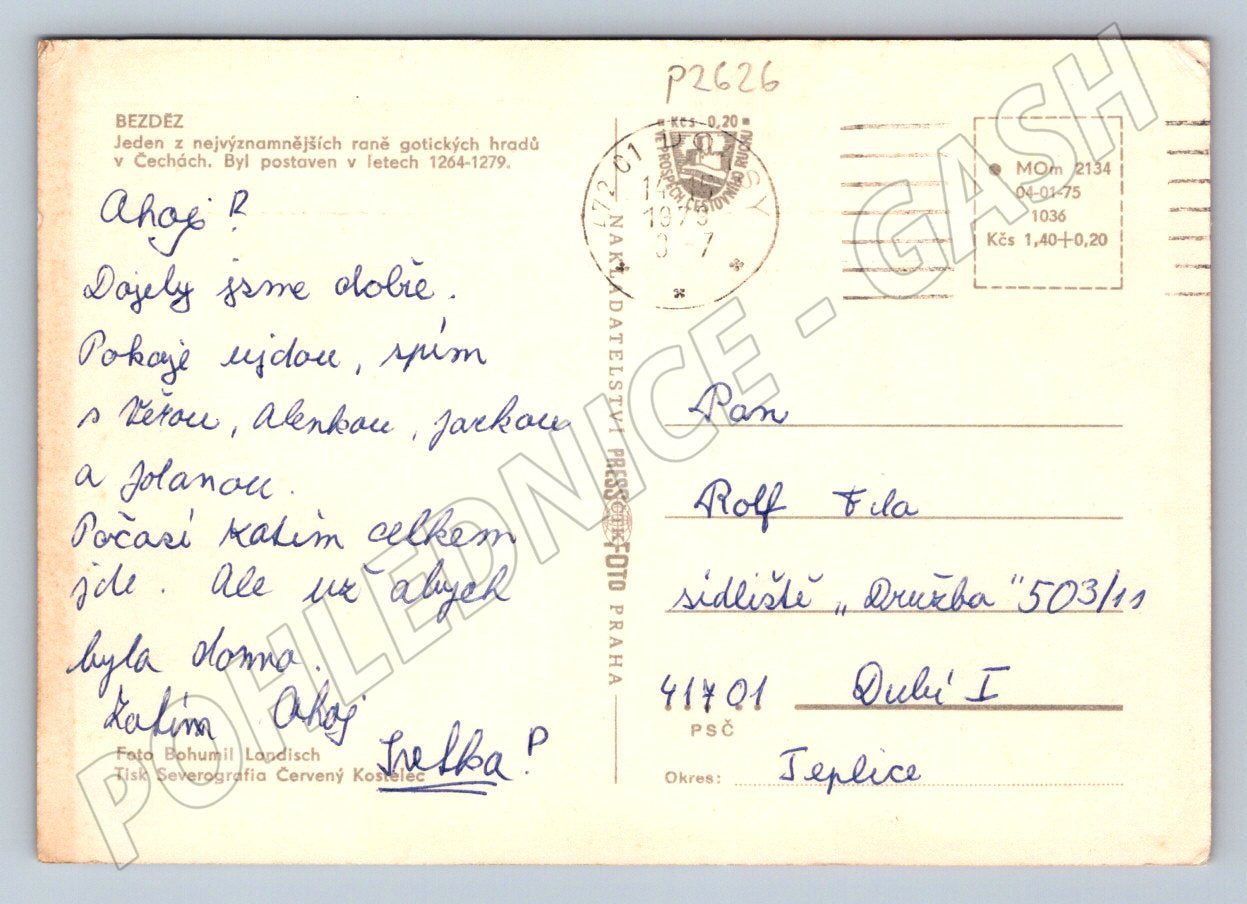 P2626
BEZDĚZ
Jeden z nejvýznamnějších raně gotických hradů
v Čechách. Byl postaven v letech 1264-1279.
Ahoj!
Dojely jsme dobře.
Pokoje ujdou, spím
s Věrou, Alenkou, Jarkou
a Jolanou.
Počasí zatím celkem
jde. Ale už abych
byla doma.
Zatím Ahoj
Foto Bohumil Landisch
Tisk Severografia Červený Kostelec
NAKLADATELSTVÍ PRESSFOTO PRAHA
Kčs 0,20
VE PROSPĚCH CESTOVNÍHO RUCHU
472 01
MOm 2134
04-01-75
1036
Kčs 1,40+0,20
Pan
Rolf Fila
sídliště „Družba" 503/11
41701 Dubí I
PSČ
Okres: Teplice
POHLEDNICE - GASH